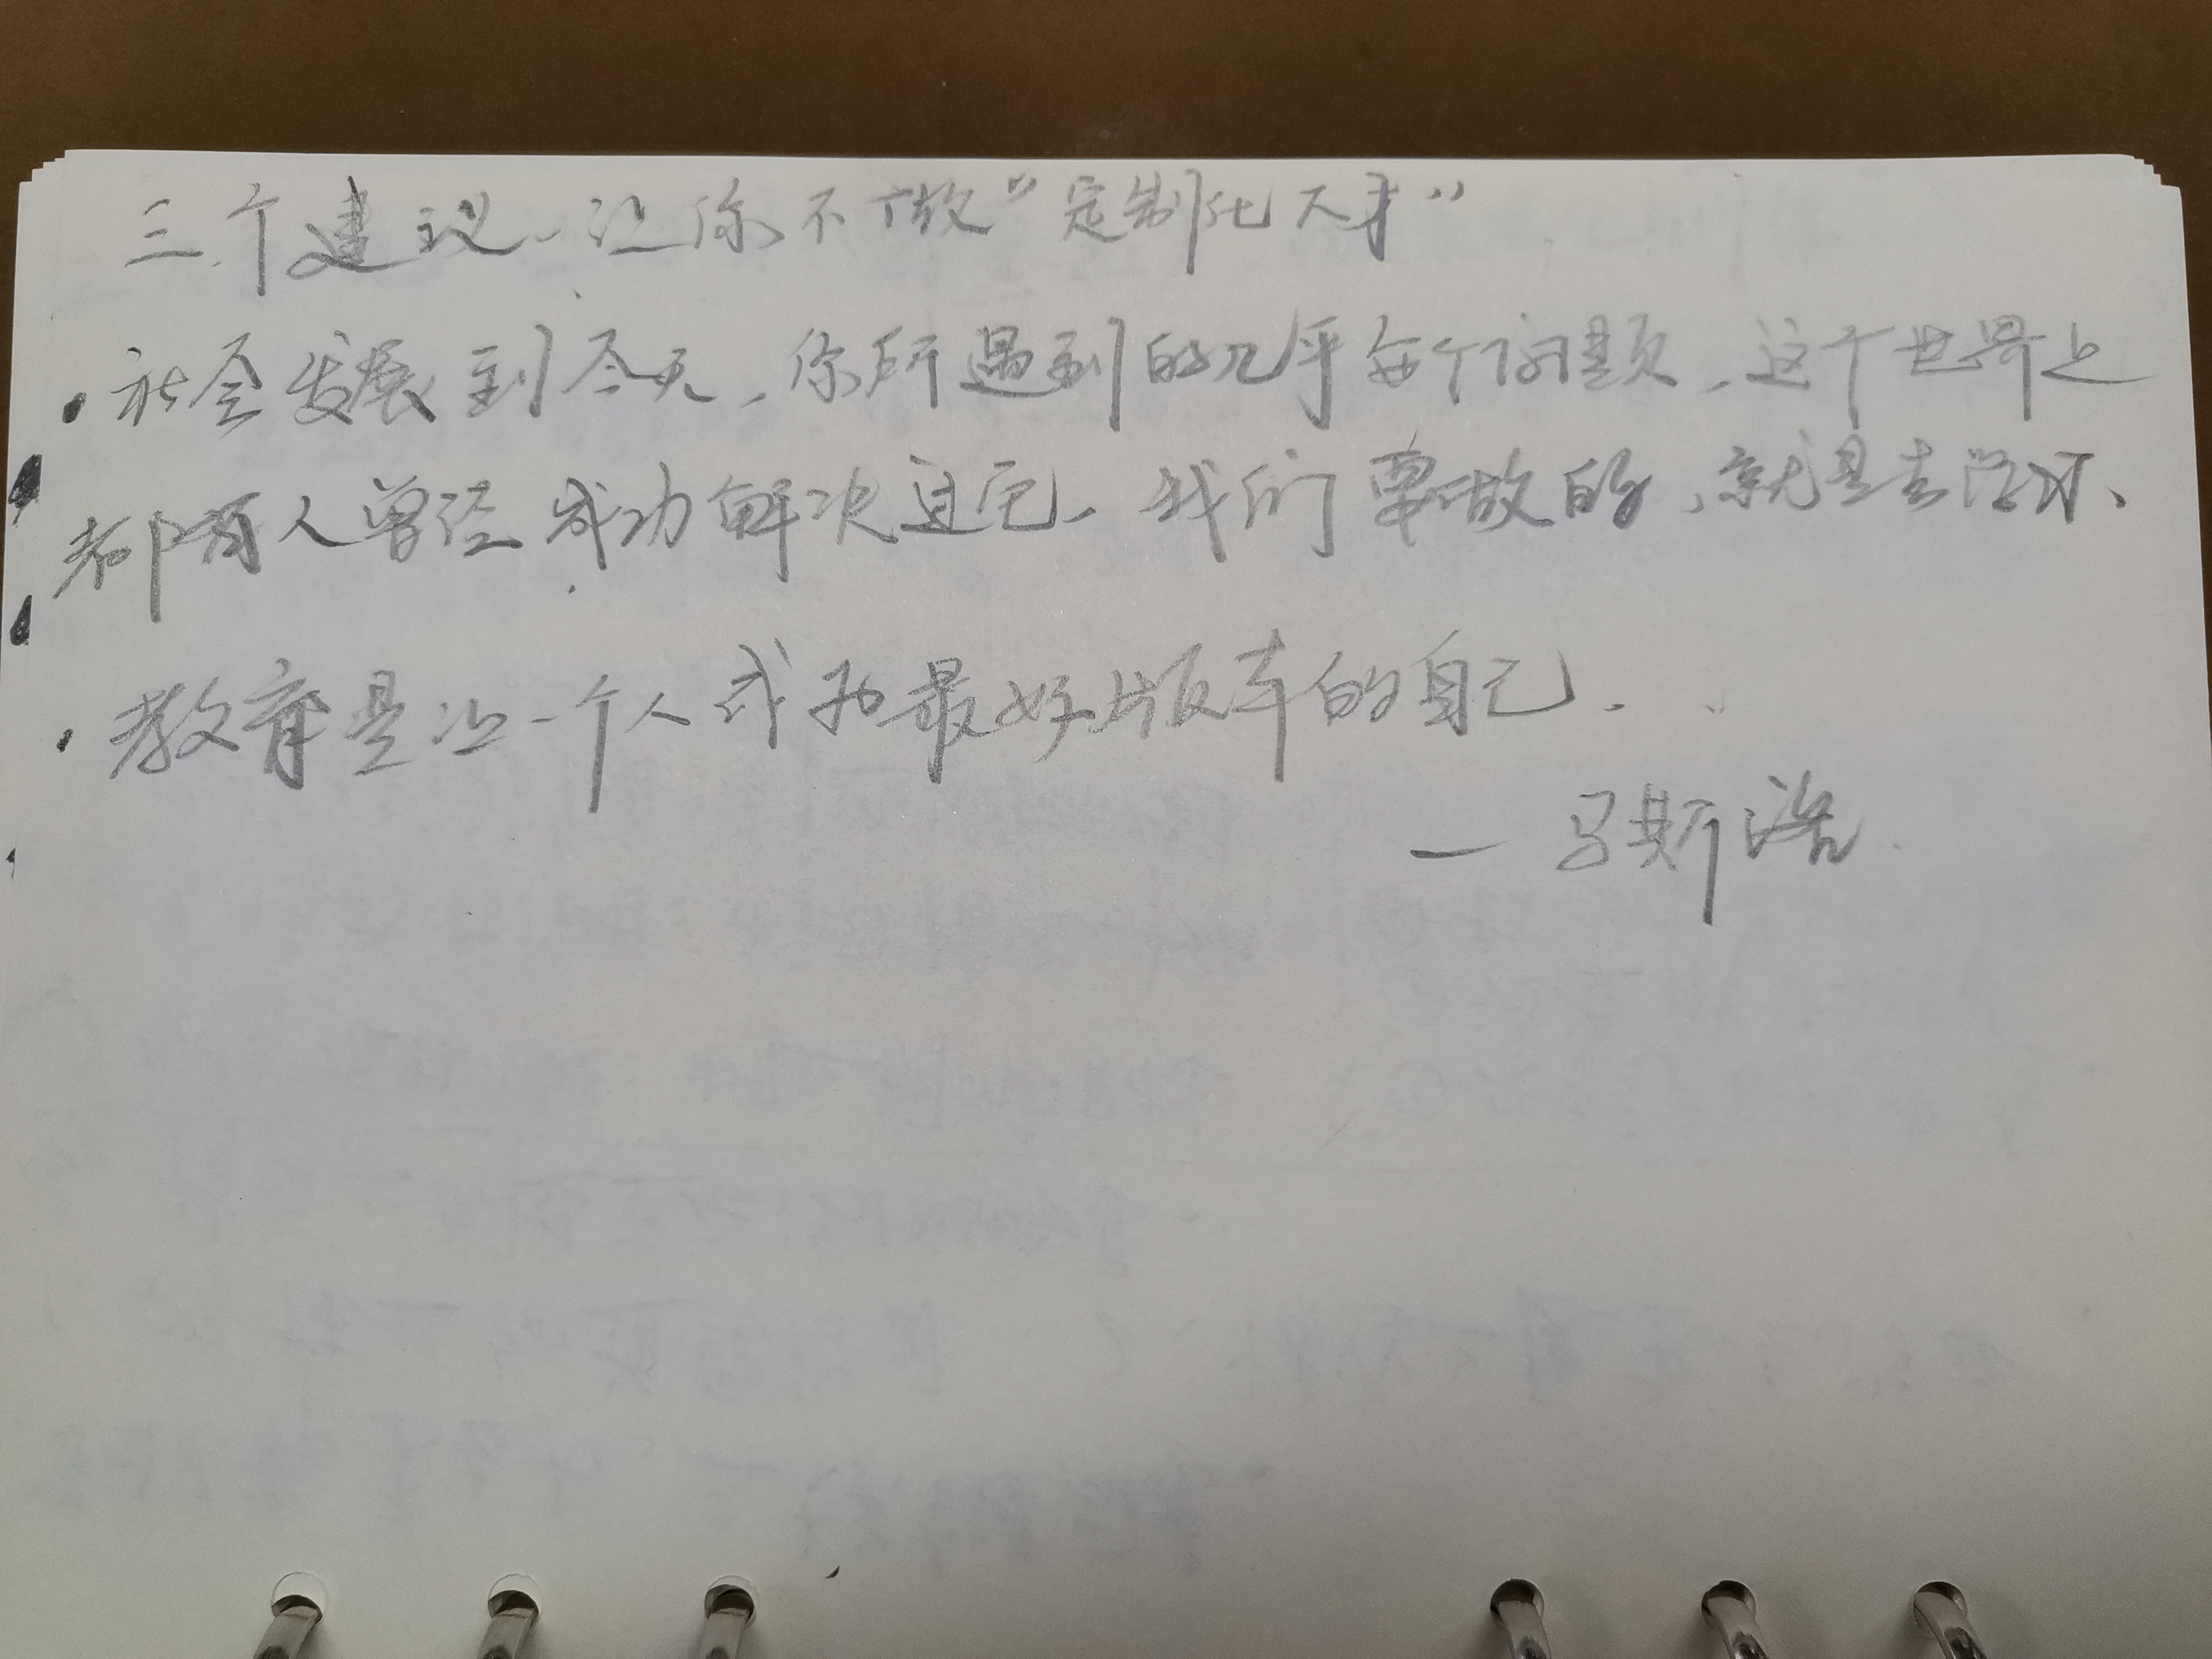 三个建议、让你不做“定制化天才”
·社会发展到今天、你所遇到的几乎每个问题、这个世界上
都有人曾经成功解决过它、我们要做的、就是去学习、
·教育是让一个人成为最好版本的自己.
— 马斯洛